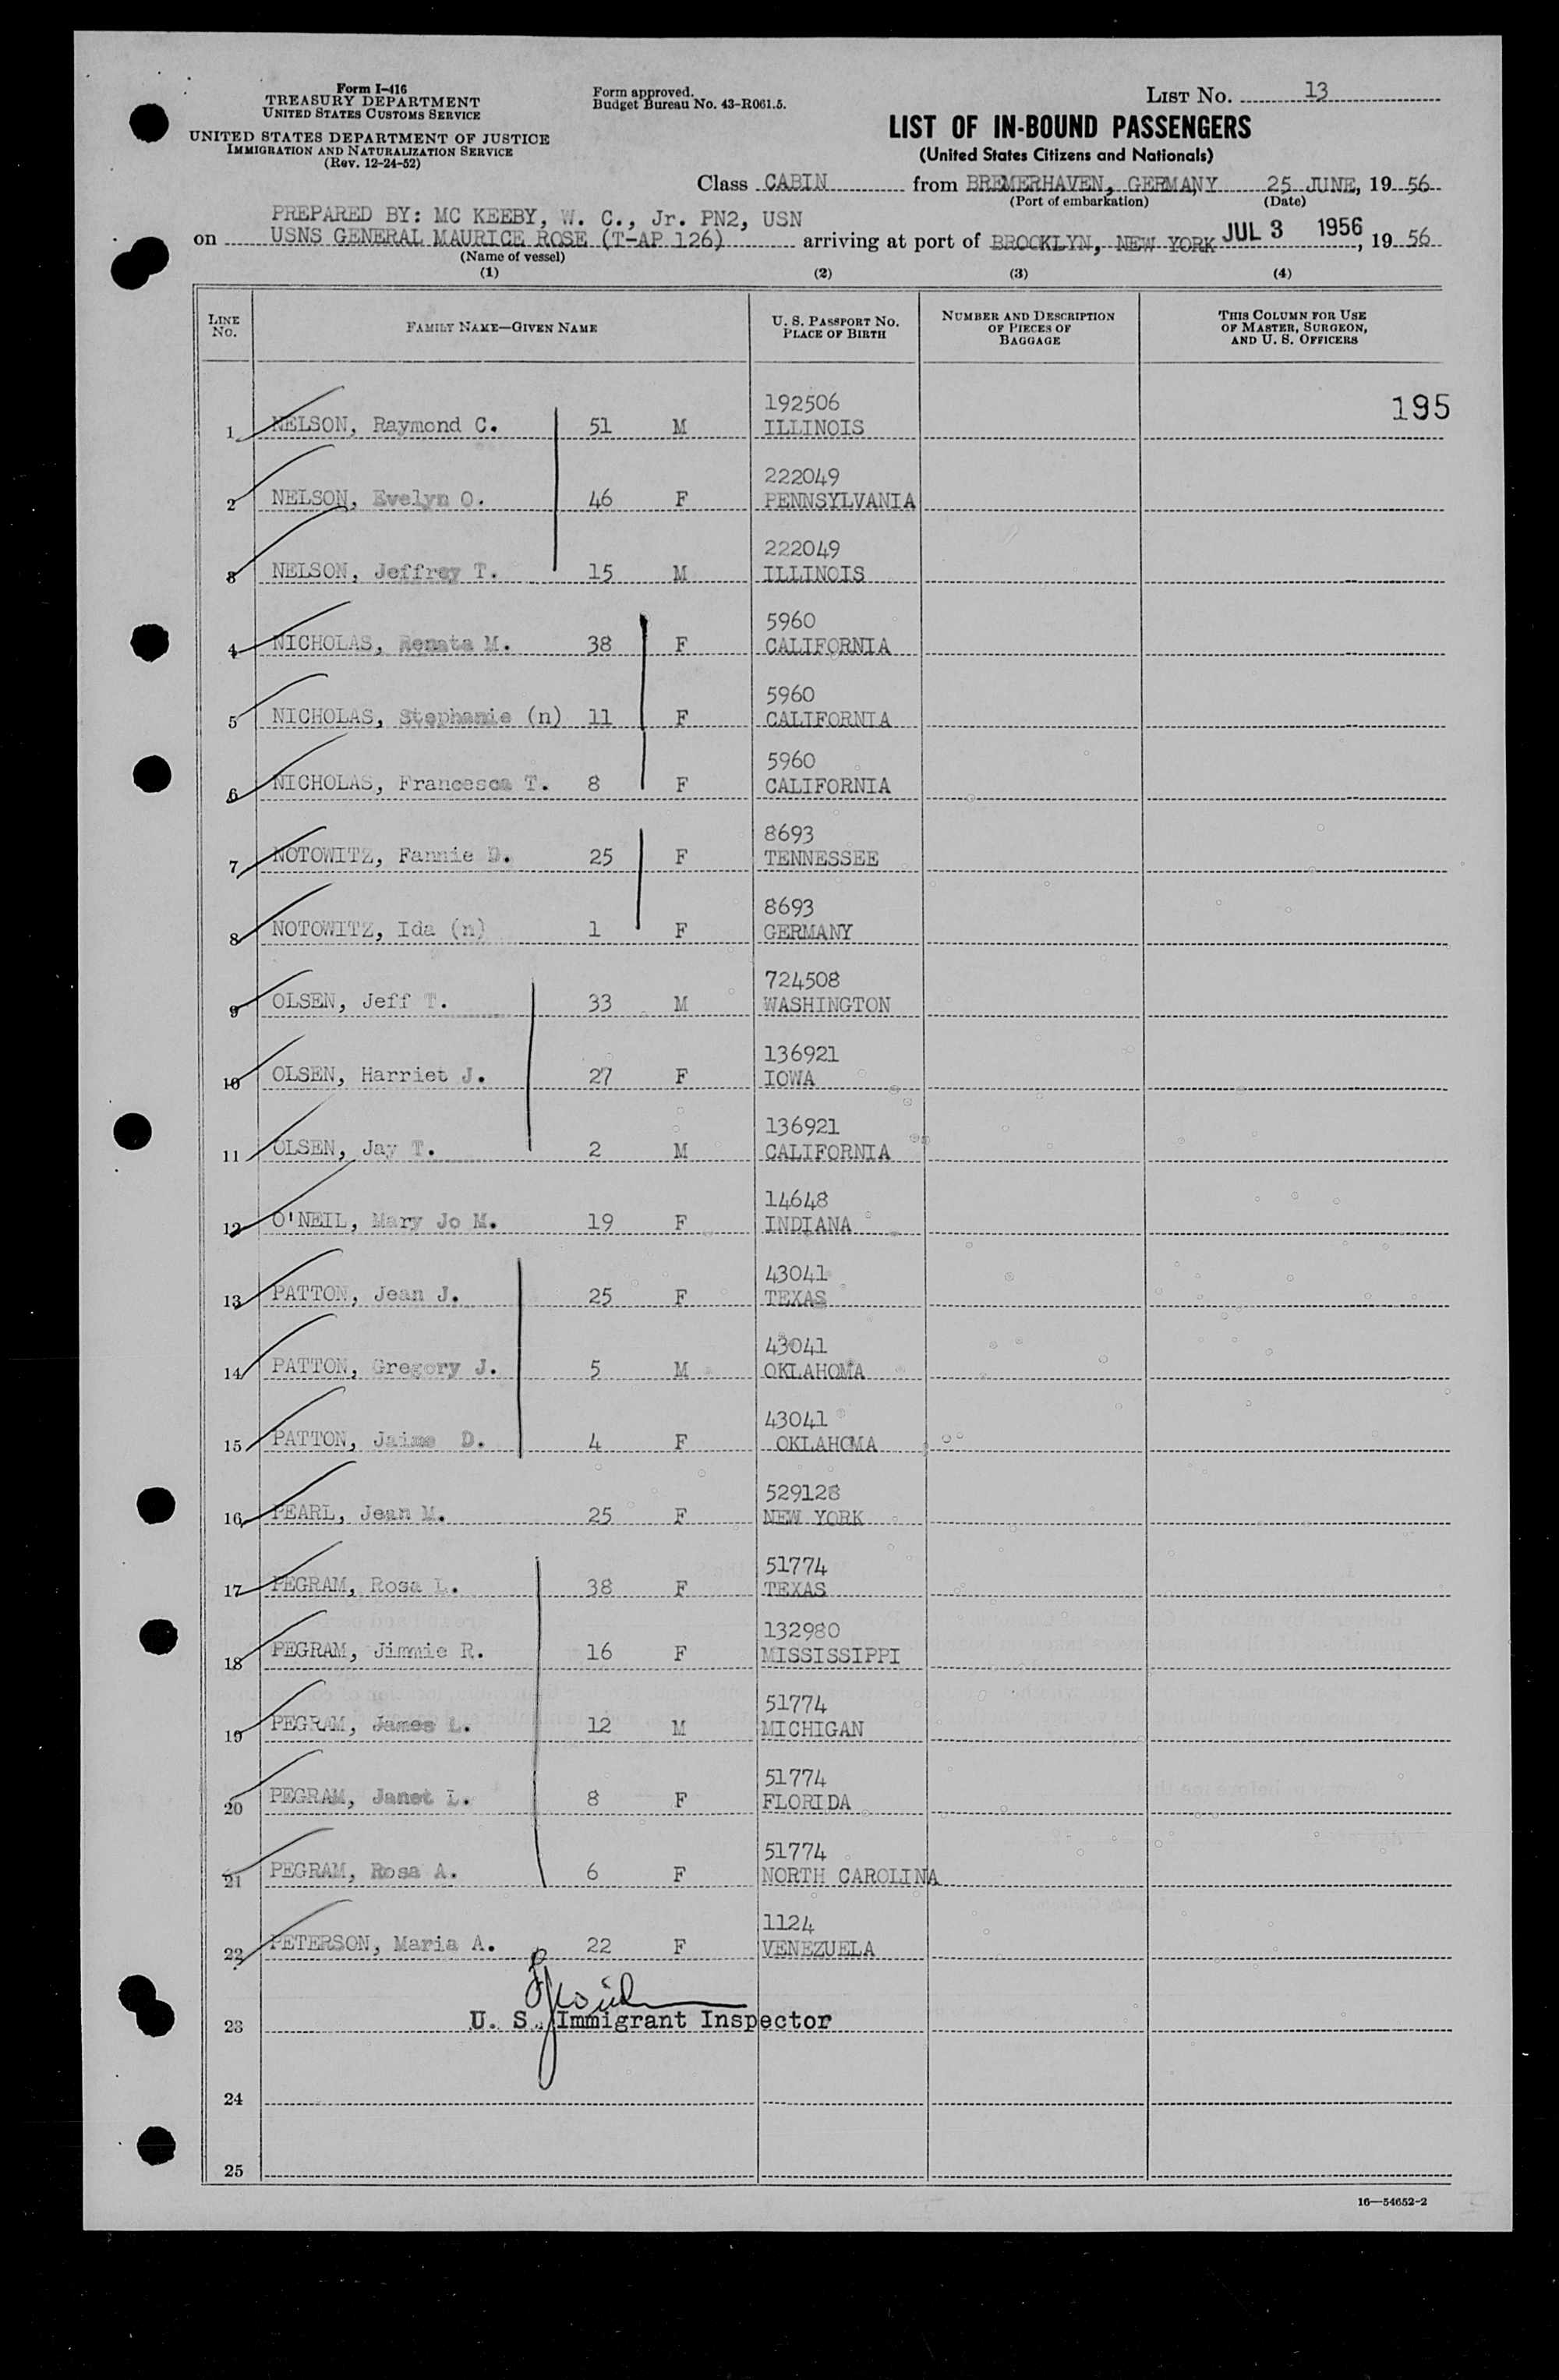 Form I-416
TREASURY DEPARTMENT
UNITED STATES CUSTOMS SERVICE
UNITED STATES DEPARTMENT OF JUSTICE
IMMIGRATION AND NATURALIZATION SERVICE
(Rev. 12-24-52)
Form approved.
Budget Bureau No. 43-R061.5.
LIST NO. 13
LIST OF IN-BOUND PASSENGERS
(United States Citizens and Nationals)
Class CABIN from BREMERHAVEN, GERMANY 25 JUNE, 19 56
(Port of embarkation) (Date)
PREPARED BY: MC KEEBY, W. C., Jr. PN2, USN
on USNS GENERAL MAURICE ROSE (T-AP 126) arriving at port of BROOKLYN, NEW YORK JUL 3 1956, 19 56
(Name of vessel)
(1) (2) (3) (4)
LINE NO. FAMILY NAME—GIVEN NAME U. S. PASSPORT NO. PLACE OF BIRTH NUMBER AND DESCRIPTION OF PIECES OF BAGGAGE THIS COLUMN FOR USE OF MASTER, SURGEON, AND U. S. OFFICERS
195
192506
1 NELSON, Raymond C. 51 M ILLINOIS
222049
2 NELSON, Evelyn O. 46 F PENNSYLVANIA
222049
3 NELSON, Jeffrey T. 15 M ILLINOIS
5960
4 NICHOLAS, Renata M. 38 F CALIFORNIA
5960
5 NICHOLAS, Stephanie (n) 11 F CALIFORNIA
5960
6 NICHOLAS, Francesca T. 8 F CALIFORNIA
8693
7 NOTOWITZ, Fannie D. 25 F TENNESSEE
8693
8 NOTOWITZ, Ida (n) 1 F GERMANY
724508
9 OLSEN, Jeff T. 33 M WASHINGTON
136921
10 OLSEN, Harriet J. 27 F IOWA
136921
11 OLSEN, Jay T. 2 M CALIFORNIA
14648
12 O'NEIL, Mary Jo M. 19 F INDIANA
43041
13 PATTON, Jean J. 25 F TEXAS
43041
14 PATTON, Gregory J. 5 M OKLAHOMA
43041
15 PATTON, Jaime D. 4 F OKLAHOMA
529128
16 PEARL, Jean M. 25 F NEW YORK
51774
17 PEGRAM, Rosa L. 38 F TEXAS
132980
18 PEGRAM, Jimmie R. 16 F MISSISSIPPI
51774
19 PEGRAM, James L. 12 M MICHIGAN
51774
20 PEGRAM, Janet L. 8 F FLORIDA
51774
21 PEGRAM, Rosa A. 6 F NORTH CAROLINA
1124
22 PETERSON, Maria A. 22 F VENEZUELA
23 U. S. Immigrant Inspector
24
25
16—54652-2